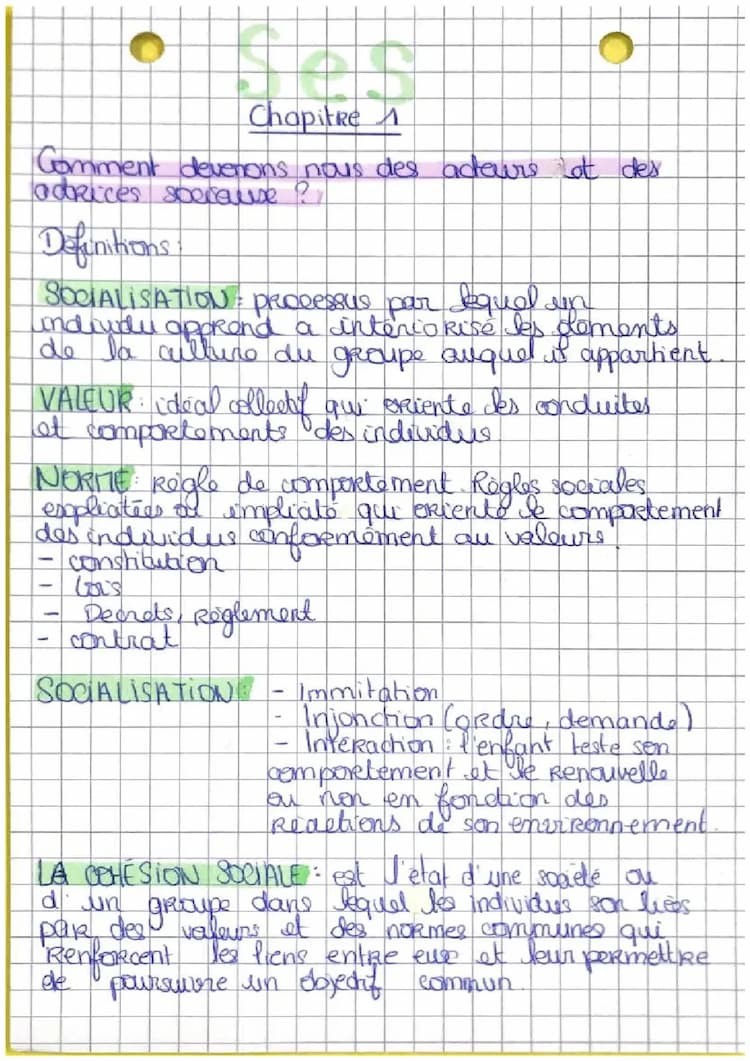 Ses
Chapitre 1
Comment devenons nous des acteurs et des
actrices sociaux ?
Définitions :
SOCIALISATION : processus par lequel un
individu apprend a intériorisé les éléments
de la culture du groupe auquel il appartient.
VALEUR : idéal collectif qui oriente des conduites
et comportements des individus
NORME : Règle de comportement. Règles sociales
explicitées ou implicité qui oriente le comportement
des individus conformément au valeurs.
- constitution
- Lois
- Decrets, Règlement
- contrat
SOCIALISATION : - Immitation
- Injonction (ordre, demande)
- Interaction : l'enfant teste son
comportement et le renouvelle
ou non en fonction des
réactions de son environnement.
LA COHÉSION SOCIALE : est l'état d'une société ou
d'un groupe dans lequel les individus son liés
par des valeurs et des normes communes qui
Renforcent les liens entre eux et leur permettre
de poursuivre un objectif commun.